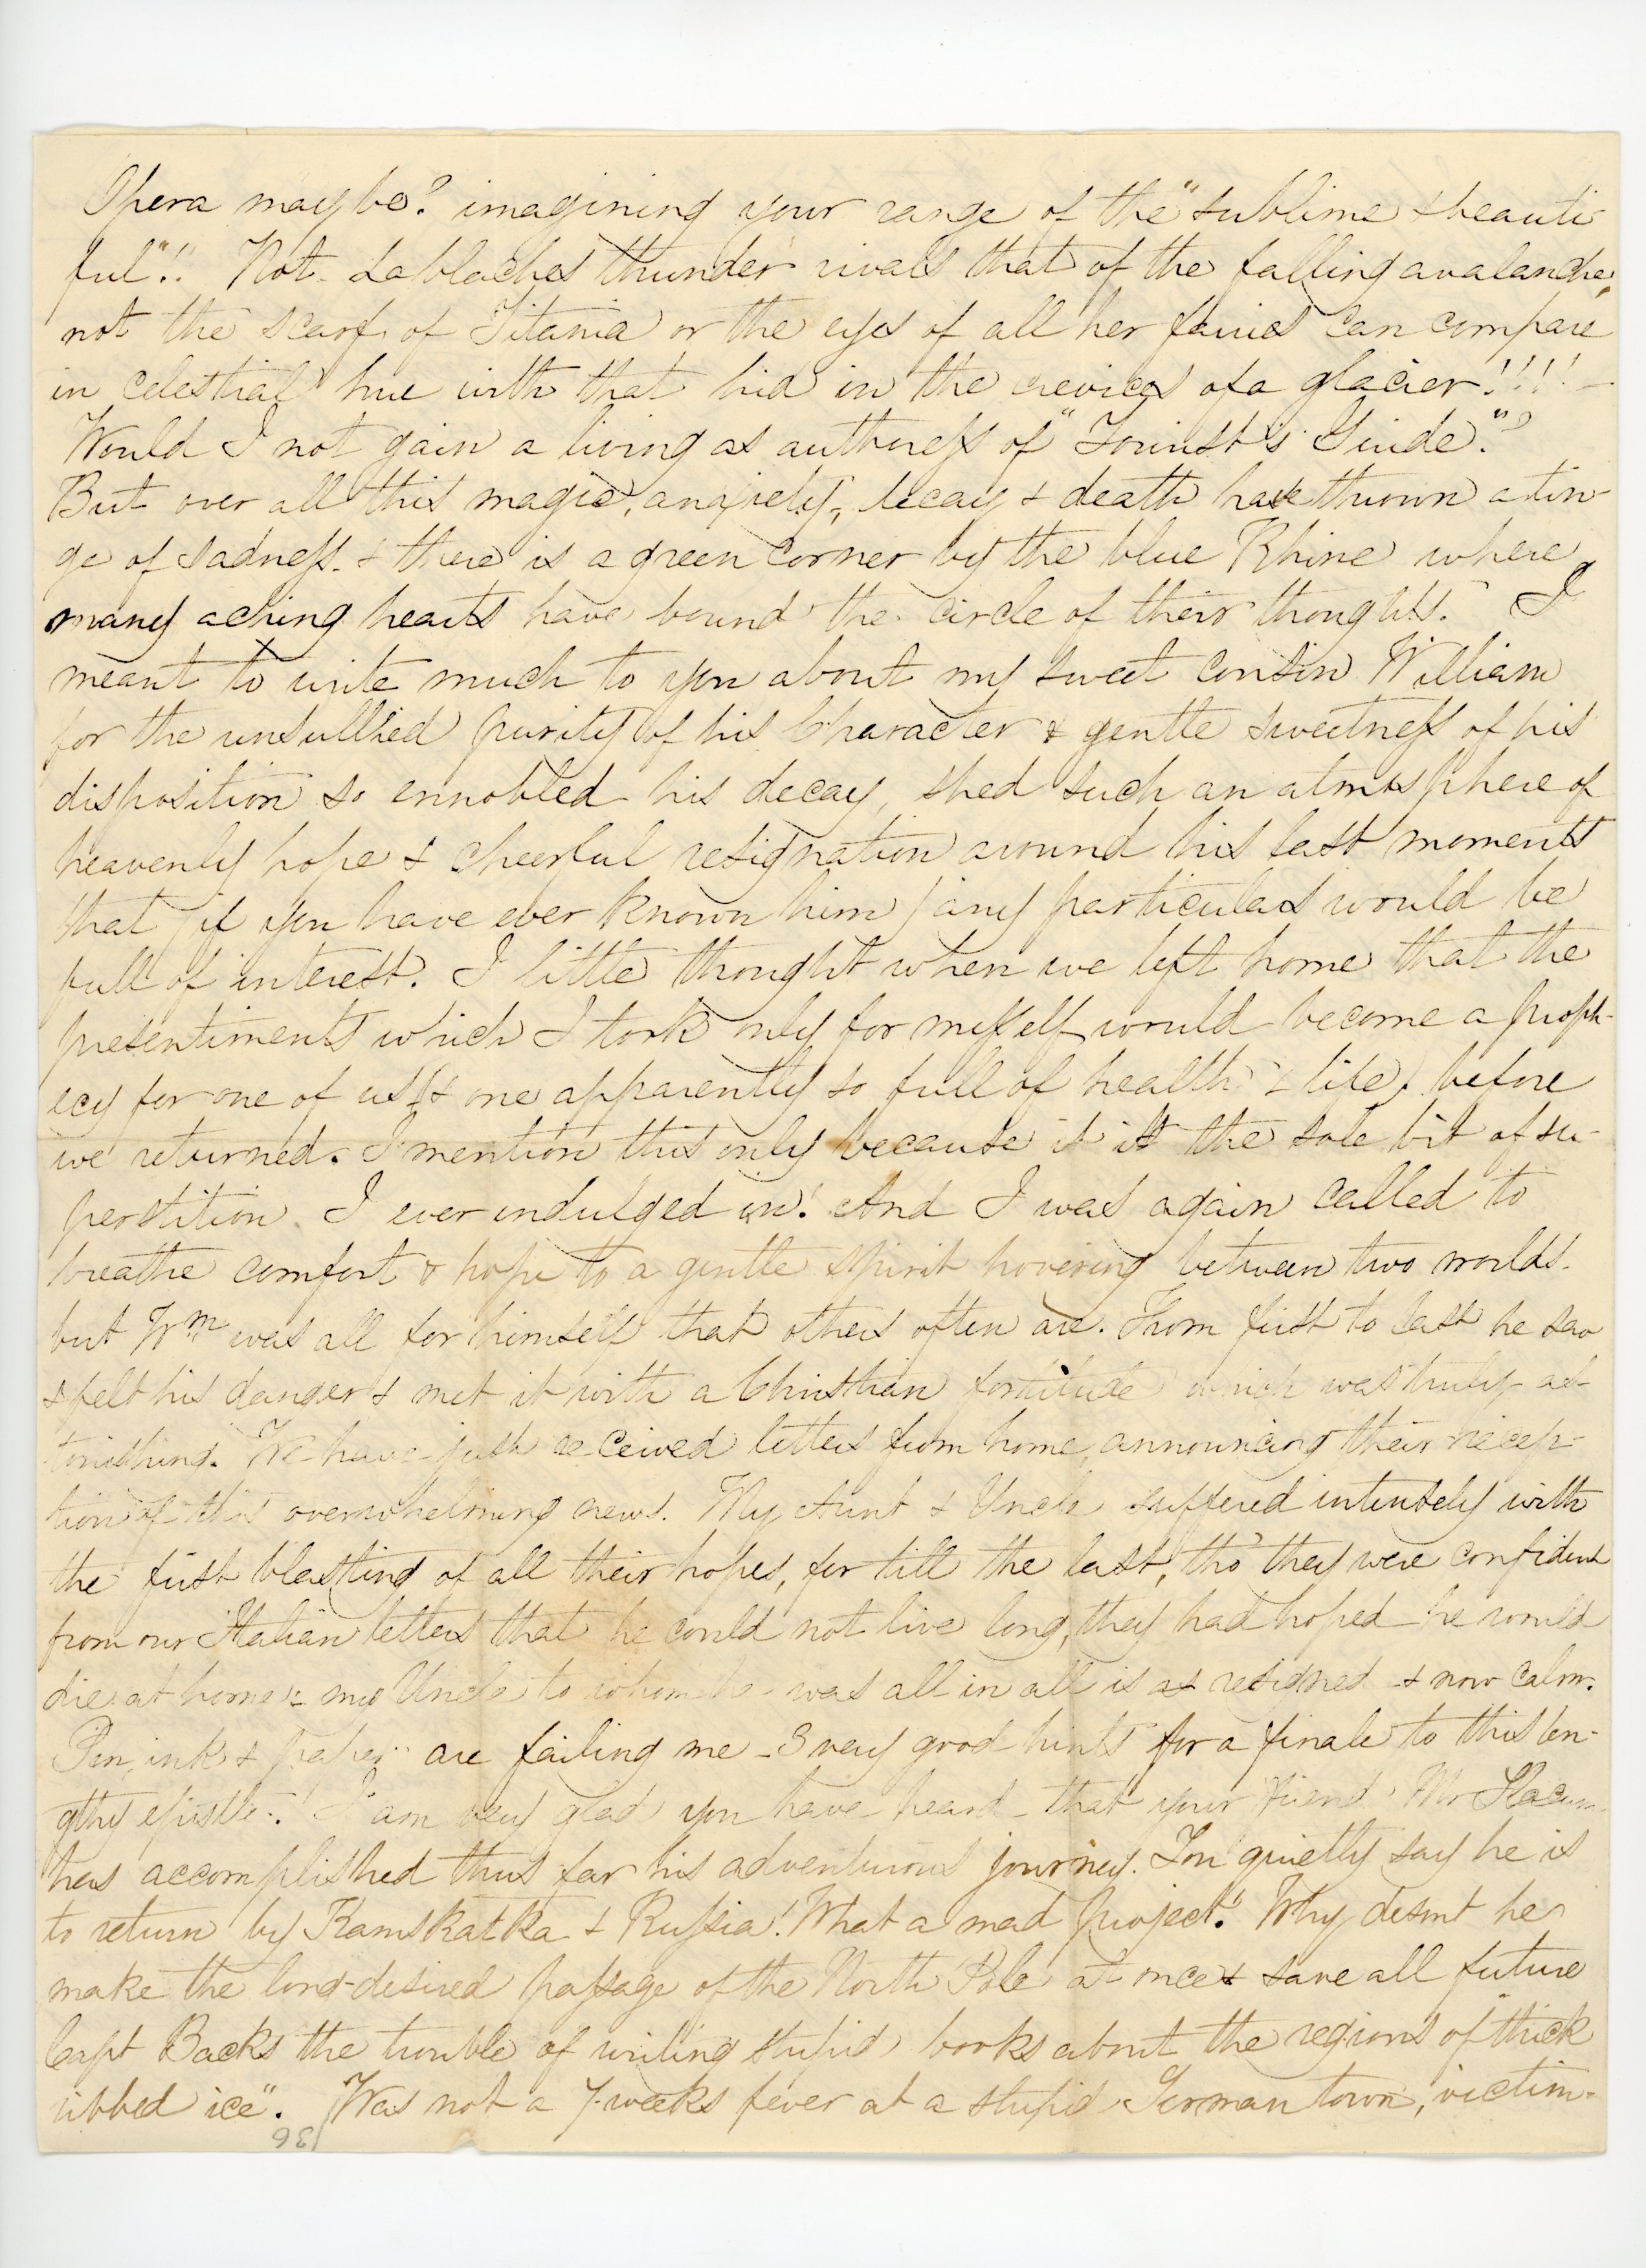 Opera maybe? imagining your range of the "sublime & beauti
ful"!! Not Lablaches thunder rivals that of the falling avalanche,
not the scarf of Titania or the eyes of all her fairies can compare
in celestial hue with that hid in the crevices of a glacier!!!! -
Would I not gain a living as authoress of "Tourist's Guide"?
But over all this magic, anxiety, decay & death have thrown a tin-
ge of sadness. & there is a green corner by the blue Rhine where
many aching hearts have bound the circle of their thoughts. I
meant to write much to you about my sweet cousin William
for the unsullied purity of his character & gentle sweetness of his
disposition so ennobled his decay, shed such an atmosphere of
heavenly hope & cheerful resignation around his last moments
that (if you have ever known him) any particulars would be
full of interest. I little thought when we left home that the
presentiments which I took only for myself would become a proph-
ecy for one of us (& one apparently so full of health & life) before
we returned. I mention this only because it is the sole bit of su-
perstition I ever indulged in! And I was again called to
breathe comfort & hope to a gentle spirit hovering between two worlds.
but Wm was all for himself that others often are. From first to last he saw
& felt his danger & met it with a Christian fortitude which was truly as-
tonishing. We have just received letters from home, announcing their recep-
tion of this overwhelming news. My Aunt & Uncle suffered intensely with
the first blasting of all their hopes, for till the last, tho' they were confident
from our Italian letters that he could not live long, they had hoped he would
die at home; my Uncle to whom he was all in all is as resigned & now calm.
Pen, ink & paper are failing me - 3 very good hints for a finale to this len-
gthy epistle. I am very glad you have heard that your friend Mr Slacum
has accomplished thus far his adventurous journey. You quietly say he is
to return by Kamskatka & Russia! What a mad project! Why doesnt he
make the long-desired passage of the North Pole at once & save all future
Capt Backs the trouble of writing stupid books about the regions of "thick
ribbed ice". Was not a 7 weeks fever at a stupid German town, victim-
136